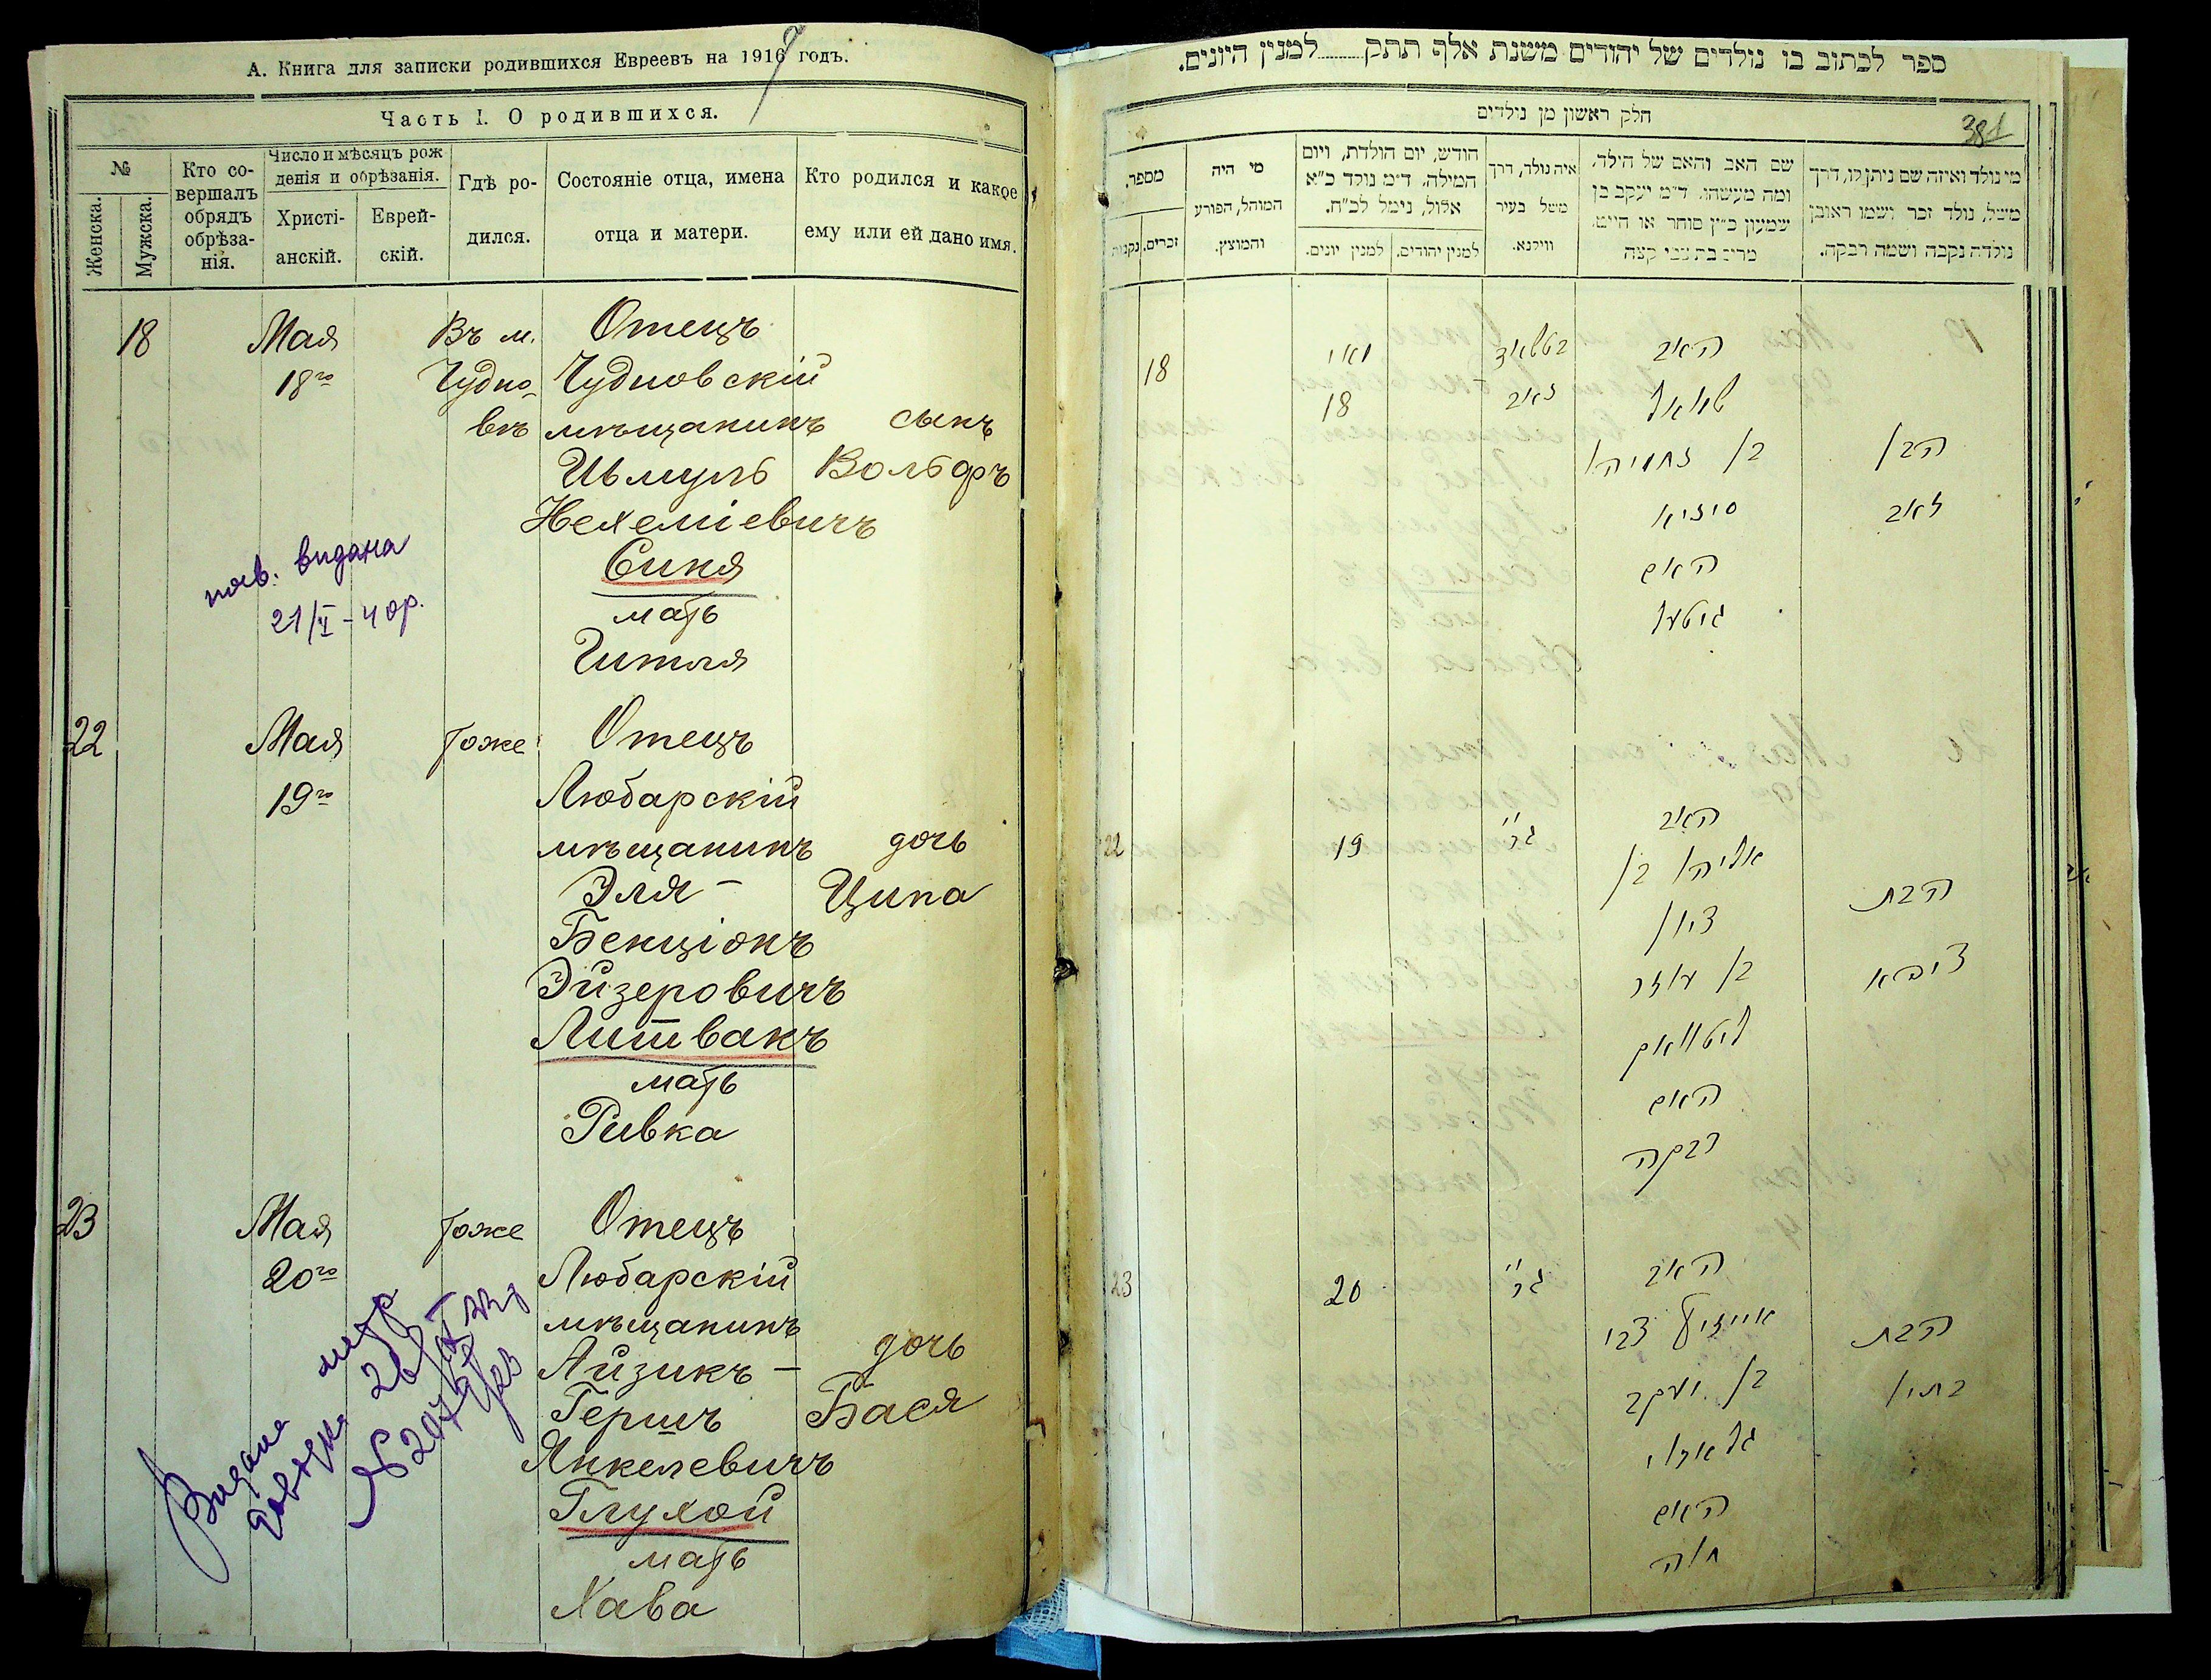 А. Книга для записки родившихся Евреевъ на 1916 годъ.
7
Часть I. О родившихся.
№
Женска.
Мужска.
Кто со-
вершалъ
обрядъ
обрѣза-
нія.
Число и мѣсяцъ рож
денія и обрѣзанія.
Христі-
анскій.
Еврей-
скій.
Гдѣ ро-
дился.
Состояніе отца, имена
отца и матери.
Кто родился и какое
ему или ей дано имя.
18
Мая
18го
Въ м.
Чудно-
вѣ
Отецъ
Чудновскій
мѣщанинъ
Шмуль
Нехеміевичъ
Синя
мать
Гитля
сынъ
Вольфъ
видана
21/V - 40р.
22
Мая
19го
тоже
Отецъ
Любарскій
мѣщанинъ
Эля -
Бенціонъ
Эйзеровичъ
Литвакъ
мать
Ривка
дочь
Ципа
23
Мая
20го
тоже
Отецъ
Любарскій
мѣщанинъ
Айзикъ -
Гершъ
Янкелевичъ
Глухой
мать
Хава
дочь
Бася
Видана
ספר לכתוב בו נולדים של יהודים משנת אלף תתק........למנין היונים.
חלק ראשון מן נולדים
381
מספר.
זכרים.
נקבות
מי היה
המוהל, הפורע
והמוצץ.
חודש, יום הולדת, ויום
המילה. ד״מ נולד כ״א
אלול, נימל לכ״ח.
למנין יונים.
למנין יהודים.
איה נולד, דרך
משל בעיר
ווילנא.
שם האב והאם של הילד,
ומה מעשהו. ד״מ יעקב בן
שמעון כ״ץ סוחר או חייט.
מרים בת צבי קצה
מי נולד ואיזה שם ניתן לו, דרך
משל, נולד זכר ושמו ראובן
נולדה נקבה ושמה רבקה.
18
מאי
18
האב
שמואל
בן נחמיה
סיניא
האם
גיטל
הבן
זאב
22
19
האב
אליהו בן
ציון
בן עוזר
ליטוואק
האם
רבקה
הבת
ציפא
23
20
האב
אייזיק צבי
בן יעקב
האם
חוה
הבת